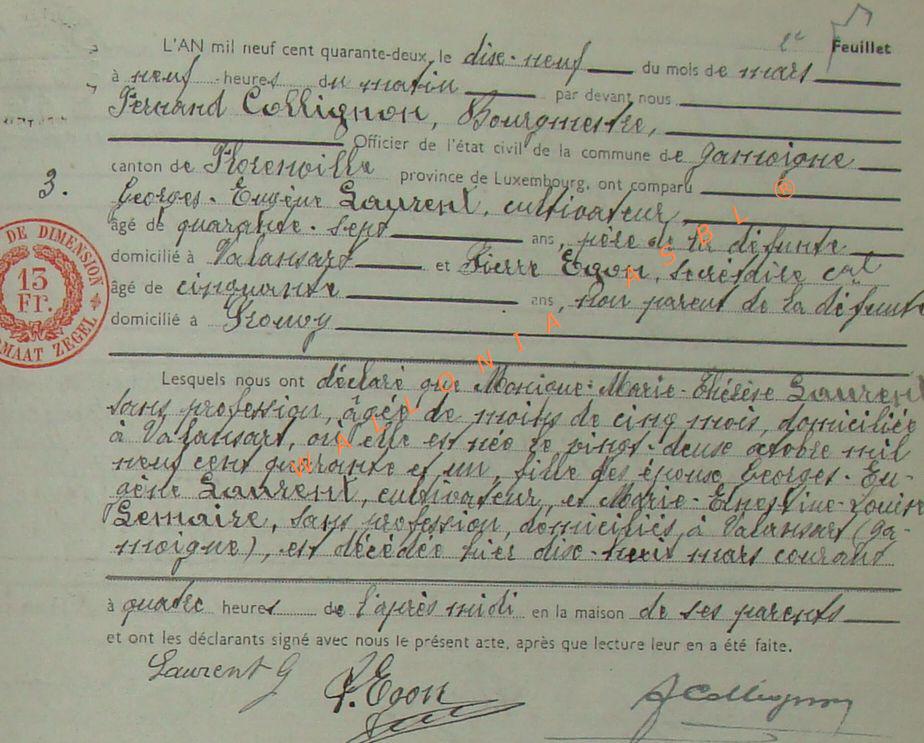 1e Feuillet
L'AN mil neuf cent quarante-deux, le dix-neuf du mois de mars
à neuf heures du matin par devant nous
Fernand Collignon, Bourgmestre,
Officier de l'état civil de la commune de Jamoigne
canton de Florenville province de Luxembourg, ont comparu
3.
Georges-Eugène Laurent, cultivateur
âgé de quarante-sept ans, père de la défunte
domicilié à Valansart et Pierre Egon, secrétaire cal
âgé de cinquante ans, non parent de la défunte
domicilié à Prouvy
Lesquels nous ont déclaré que Monique-Marie-Thérèse Laurent
sans profession, âgée de moins de cinq mois, domiciliée
à Valansart, où elle est née le vingt-deux octobre mil
neuf cent quarante et un, fille des époux Georges-Eu-
gène Laurent, cultivateur, et Marie-Ernestine-Louise
Lemaire, sans profession, domiciliés à Valansart (Ja-
moigne), est décédée hier dix-huit mars courant
à quatre heures de l'après midi en la maison de ses parents
et ont les déclarants signé avec nous le présent acte, après que lecture leur en a été faite.
Laurent G
P. Egon
F Collignon
DE DIMENSION
13
Fr.
MAAT ZEGEL
WALLONIA ASBL ®